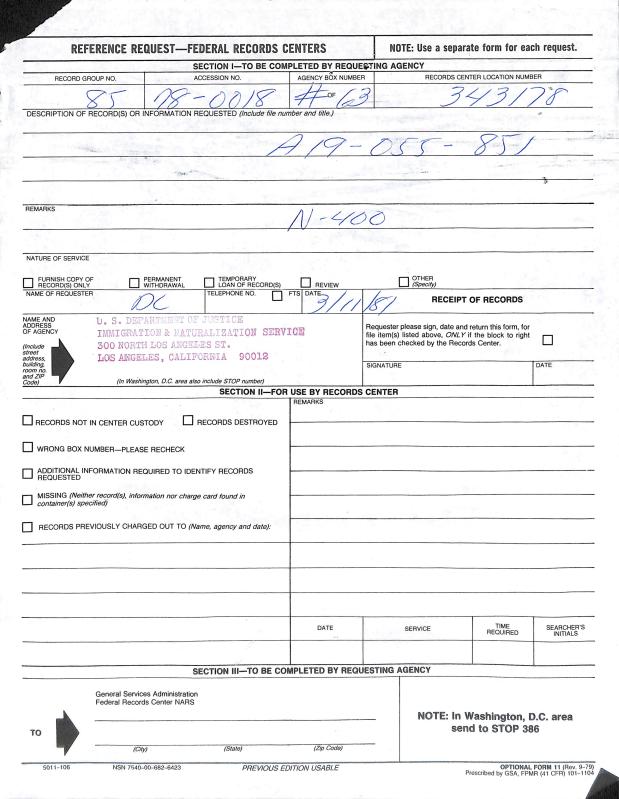 REFERENCE REQUEST—FEDERAL RECORDS CENTERS
NOTE: Use a separate form for each request.
SECTION I—TO BE COMPLETED BY REQUESTING AGENCY
RECORD GROUP NO. ACCESSION NO. AGENCY BOX NUMBER RECORDS CENTER LOCATION NUMBER
85 78-0018 # OF 63 343178
DESCRIPTION OF RECORD(S) OR INFORMATION REQUESTED (Include file number and title.)
A19-055-851
REMARKS
N-400
NATURE OF SERVICE
FURNISH COPY OF RECORD(S) ONLY
PERMANENT WITHDRAWAL
TEMPORARY LOAN OF RECORD(S)
REVIEW
OTHER (Specify)
NAME OF REQUESTER TELEPHONE NO. FTS DATE
DC 3/11/81
RECEIPT OF RECORDS
NAME AND ADDRESS OF AGENCY
(Include street address, building, room no. and ZIP Code)
U. S. DEPARTMENT OF JUSTICE
IMMIGRATION & NATURALIZATION SERVICE
300 NORTH LOS ANGELES ST.
LOS ANGELES, CALIFORNIA 90012
(In Washington, D.C. area also include STOP number)
Requester please sign, date and return this form, for
file item(s) listed above, ONLY if the block to right
has been checked by the Records Center.
SIGNATURE DATE
SECTION II—FOR USE BY RECORDS CENTER
RECORDS NOT IN CENTER CUSTODY RECORDS DESTROYED
WRONG BOX NUMBER—PLEASE RECHECK
ADDITIONAL INFORMATION REQUIRED TO IDENTIFY RECORDS
REQUESTED
MISSING (Neither record(s), information nor charge card found in
container(s) specified)
RECORDS PREVIOUSLY CHARGED OUT TO (Name, agency and date):
REMARKS
DATE SERVICE TIME REQUIRED SEARCHER'S INITIALS
SECTION III—TO BE COMPLETED BY REQUESTING AGENCY
General Services Administration
Federal Records Center NARS
TO
(City) (State) (Zip Code)
NOTE: In Washington, D.C. area
send to STOP 386
5011-106 NSN 7540-00-682-6423 PREVIOUS EDITION USABLE OPTIONAL FORM 11 (Rev. 9-79)
Prescribed by GSA, FPMR (41 CFR) 101-1104